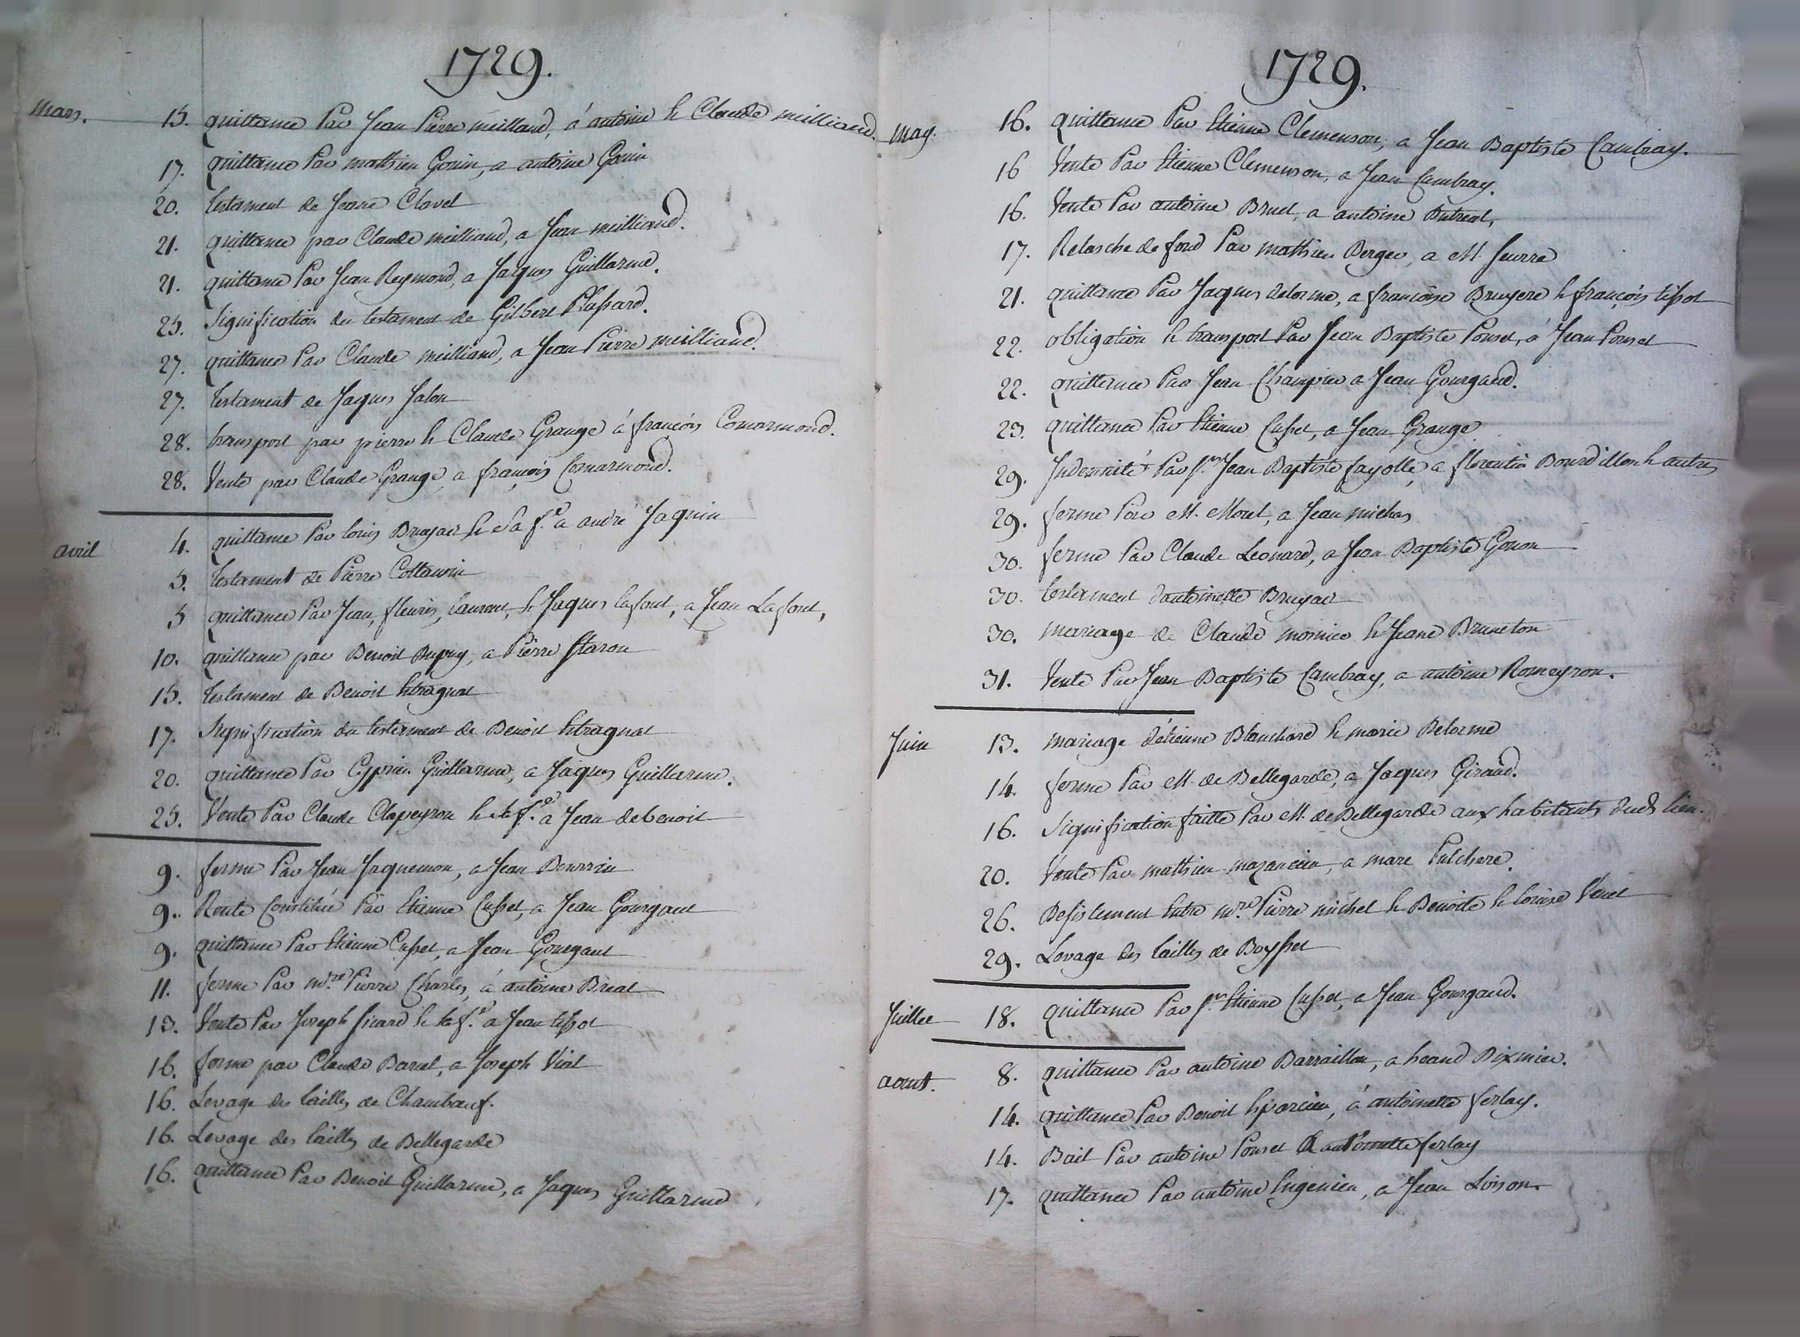 1729.
Mars. 15. quittance Par Jean Pierre meilland, à antoine & Claude milliand
17. quittance Par mathieu Gonin, a antoine Gonin
20. testament de Jeane Clavel
21. quittance par Claude milliand, a Jean milliand.
21. quittance Par Jean Reymond, a Jaques Guillarme.
25. Signification du testament de Gilbert Plassard.
27. quittance Par Claude milliand, a Jean Pierre milliand.
27. testament de Jaques Jalon
28. transport par pierre & Claude Grange à françois Comarmond.
28. Vente par Claude Grange, a françois Comarmond.
avril 4. quittance Par louis Bruyas & sa fe. a andré Jaquin
5. testament de Pierre Cottancin
5 quittance Par Jean, fleurie, laurent, & Jaques lafont, a Jean Lafont,
10. quittance par Benoit Dupuy, a Pierre Staron
15. testament de Benoit
17. Signification du testament de Benoit
20. quittance Par Cyprien Guillarme, a Jaques Guillarme.
25. Vente Par Claude Clapeyron & sa fe. a Jean debenoit
9. ferme Par Jean Jaquemon, a Jean
9. Rente Constituée Par Etienne Cusset, a Jean Gourgaud
9. quittance Par Etienne Cusset, a Jean Gourgaud
11. ferme Par mre. Pierre Charles, à antoine Brial
13. Vente Par Joseph Sicard & sa fe. a Jean tissot
16. ferme par Claude Barel, a Joseph Vial
16. Levage des tailles de Chambœuf.
16. Levage des tailles de Bellegarde
16. quittance Par Benoit Guillarme, a Jaques Guillarme
1729.
may. 16. quittance Par Etienne Clemenson, a Jean Baptiste Cambray.
16 Vente Par Etienne Clemenson, a Jean Cambray.
16. Vente Par antoine Bruel, a antoine
17. Relasche de fond Par mathieu Berger, a M. feurre
21. quittance Par Jaques delorme, a francoise Bruyere & françois tissot
22. obligation & transport Par Jean Baptiste Ponset, à Jean Ponset
22. quittance Par Jean Champier a Jean Gourgaud.
23. quittance Par Etienne Cusset, a Jean Grange
29. Indemnité Par sr. Jean Baptiste fayolle, a florentin Bourdillon & autres
29. ferme Par M. Morel, a Jean michas
30. ferme Par Claude Leonard, a Jean Baptiste Gonon
30. testament d'antoinette Bruyas
30. mariage de Claude mornieu & Jeane Bruneton
31. Vente Par Jean Baptiste Cambray, a antoine Romeyron.
Juin 13. mariage d'étienne Blanchard & marie Delorme
14. ferme Par M. de Bellegarde, a Jaques Giraud.
16. Signification faitte Par M. de Bellegarde aux habitants dudt. lieu.
20. Vente Par mathieu mazancieu, a marc Pulchere.
26. Desistement Entre mre. Pierre michel & Benoite & louise Venet
29. Levage des tailles de Boysset
Juillet 18. quittance Par sr. Etienne Cusset, a Jean Gourgaud.
aoust. 8. quittance Par antoine Barraillon, a
14. quittance Par Benoit, à antoinette ferlay.
14. Bail Par antoine Ponset a antoinette ferlay
17. quittance Par antoine, a Jean Loison